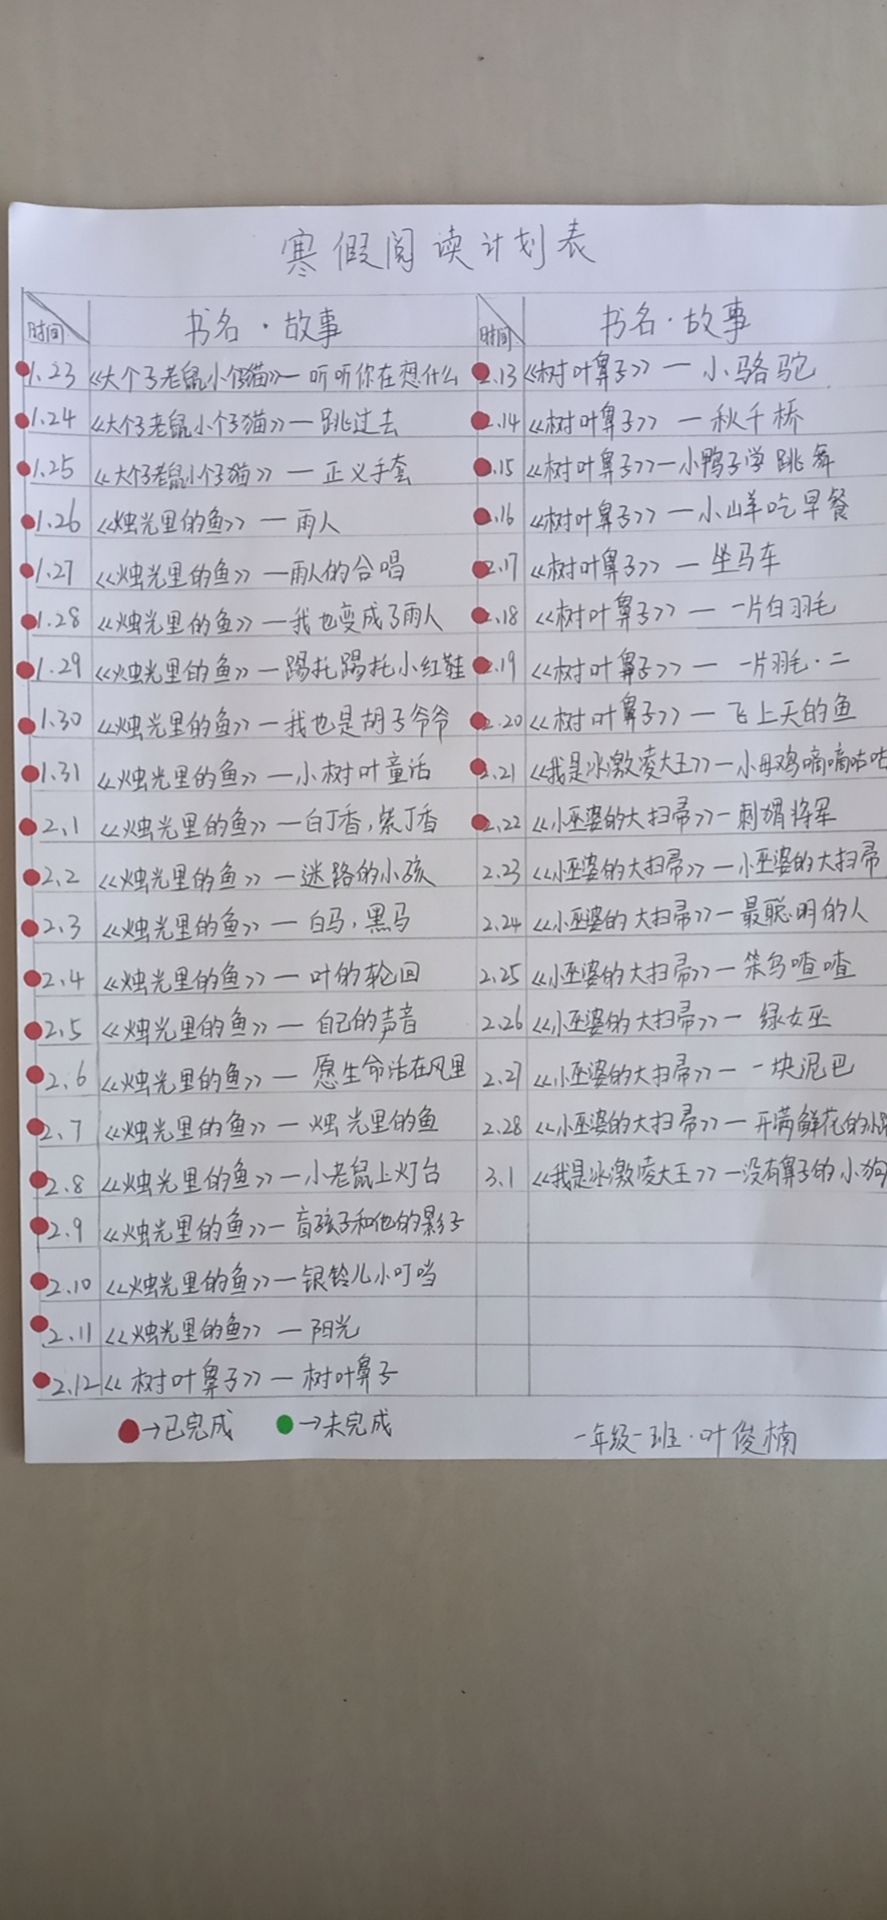 寒假阅读计划表
时间 书名·故事
1.23 《大个子老鼠小个子猫》—听听你在想什么
1.24 《大个子老鼠小个子猫》—跳过去
1.25 《大个子老鼠小个子猫》—正义手套
1.26 《烛光里的鱼》—雨人
1.27 《烛光里的鱼》—雨人的合唱
1.28 《烛光里的鱼》—我也变成了雨人
1.29 《烛光里的鱼》—踢托踢托小红鞋
1.30 《烛光里的鱼》—我也是胡子爷爷
1.31 《烛光里的鱼》—小树叶童话
2.1 《烛光里的鱼》—白丁香,紫丁香
2.2 《烛光里的鱼》—迷路的小孩
2.3 《烛光里的鱼》—白马,黑马
2.4 《烛光里的鱼》—叶的轮回
2.5 《烛光里的鱼》—自己的声音
2.6 《烛光里的鱼》—愿生命活在风里
2.7 《烛光里的鱼》—烛光里的鱼
2.8 《烛光里的鱼》—小老鼠上灯台
2.9 《烛光里的鱼》—盲孩子和他的影子
2.10 《烛光里的鱼》—银铃儿小叮当
2.11 《烛光里的鱼》—阳光
2.12 《树叶鼻子》—树叶鼻子
时间 书名·故事
2.13 《树叶鼻子》—小骆驼
2.14 《树叶鼻子》—秋千桥
2.15 《树叶鼻子》—小鸭子学跳舞
2.16 《树叶鼻子》—小山羊吃早餐
2.17 《树叶鼻子》—坐马车
2.18 《树叶鼻子》—一片白羽毛
2.19 《树叶鼻子》—一片羽毛·二
2.20 《树叶鼻子》—飞上天的鱼
2.21 《我是冰激凌大王》—小母鸡嘀嘀咕咕
2.22 《小巫婆的大扫帚》—刺猬将军
2.23 《小巫婆的大扫帚》—小巫婆的大扫帚
2.24 《小巫婆的大扫帚》—最聪明的人
2.25 《小巫婆的大扫帚》—笨鸟喳喳
2.26 《小巫婆的大扫帚》—绿女巫
2.27 《小巫婆的大扫帚》—一块泥巴
2.28 《小巫婆的大扫帚》—开满鲜花的小
3.1 《我是冰激凌大王》—没有鼻子的小狗
→已完成 →未完成
一年级一班·叶俊楠